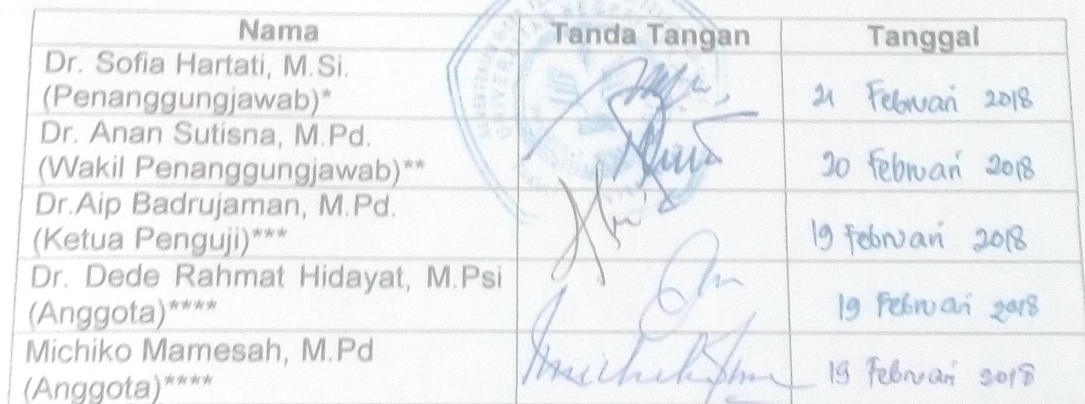 Nama Tanda Tangan Tanggal
Dr. Sofia Hartati, M.Si.
(Penanggungjawab)* 21 Februari 2018
Dr. Anan Sutisna, M.Pd.
(Wakil Penanggungjawab)** 20 Februari 2018
Dr.Aip Badrujaman, M.Pd.
(Ketua Penguji)*** 19 Februari 2018
Dr. Dede Rahmat Hidayat, M.Psi
(Anggota)**** 19 Februari 2018
Michiko Mamesah, M.Pd
(Anggota)**** 19 Februari 2018